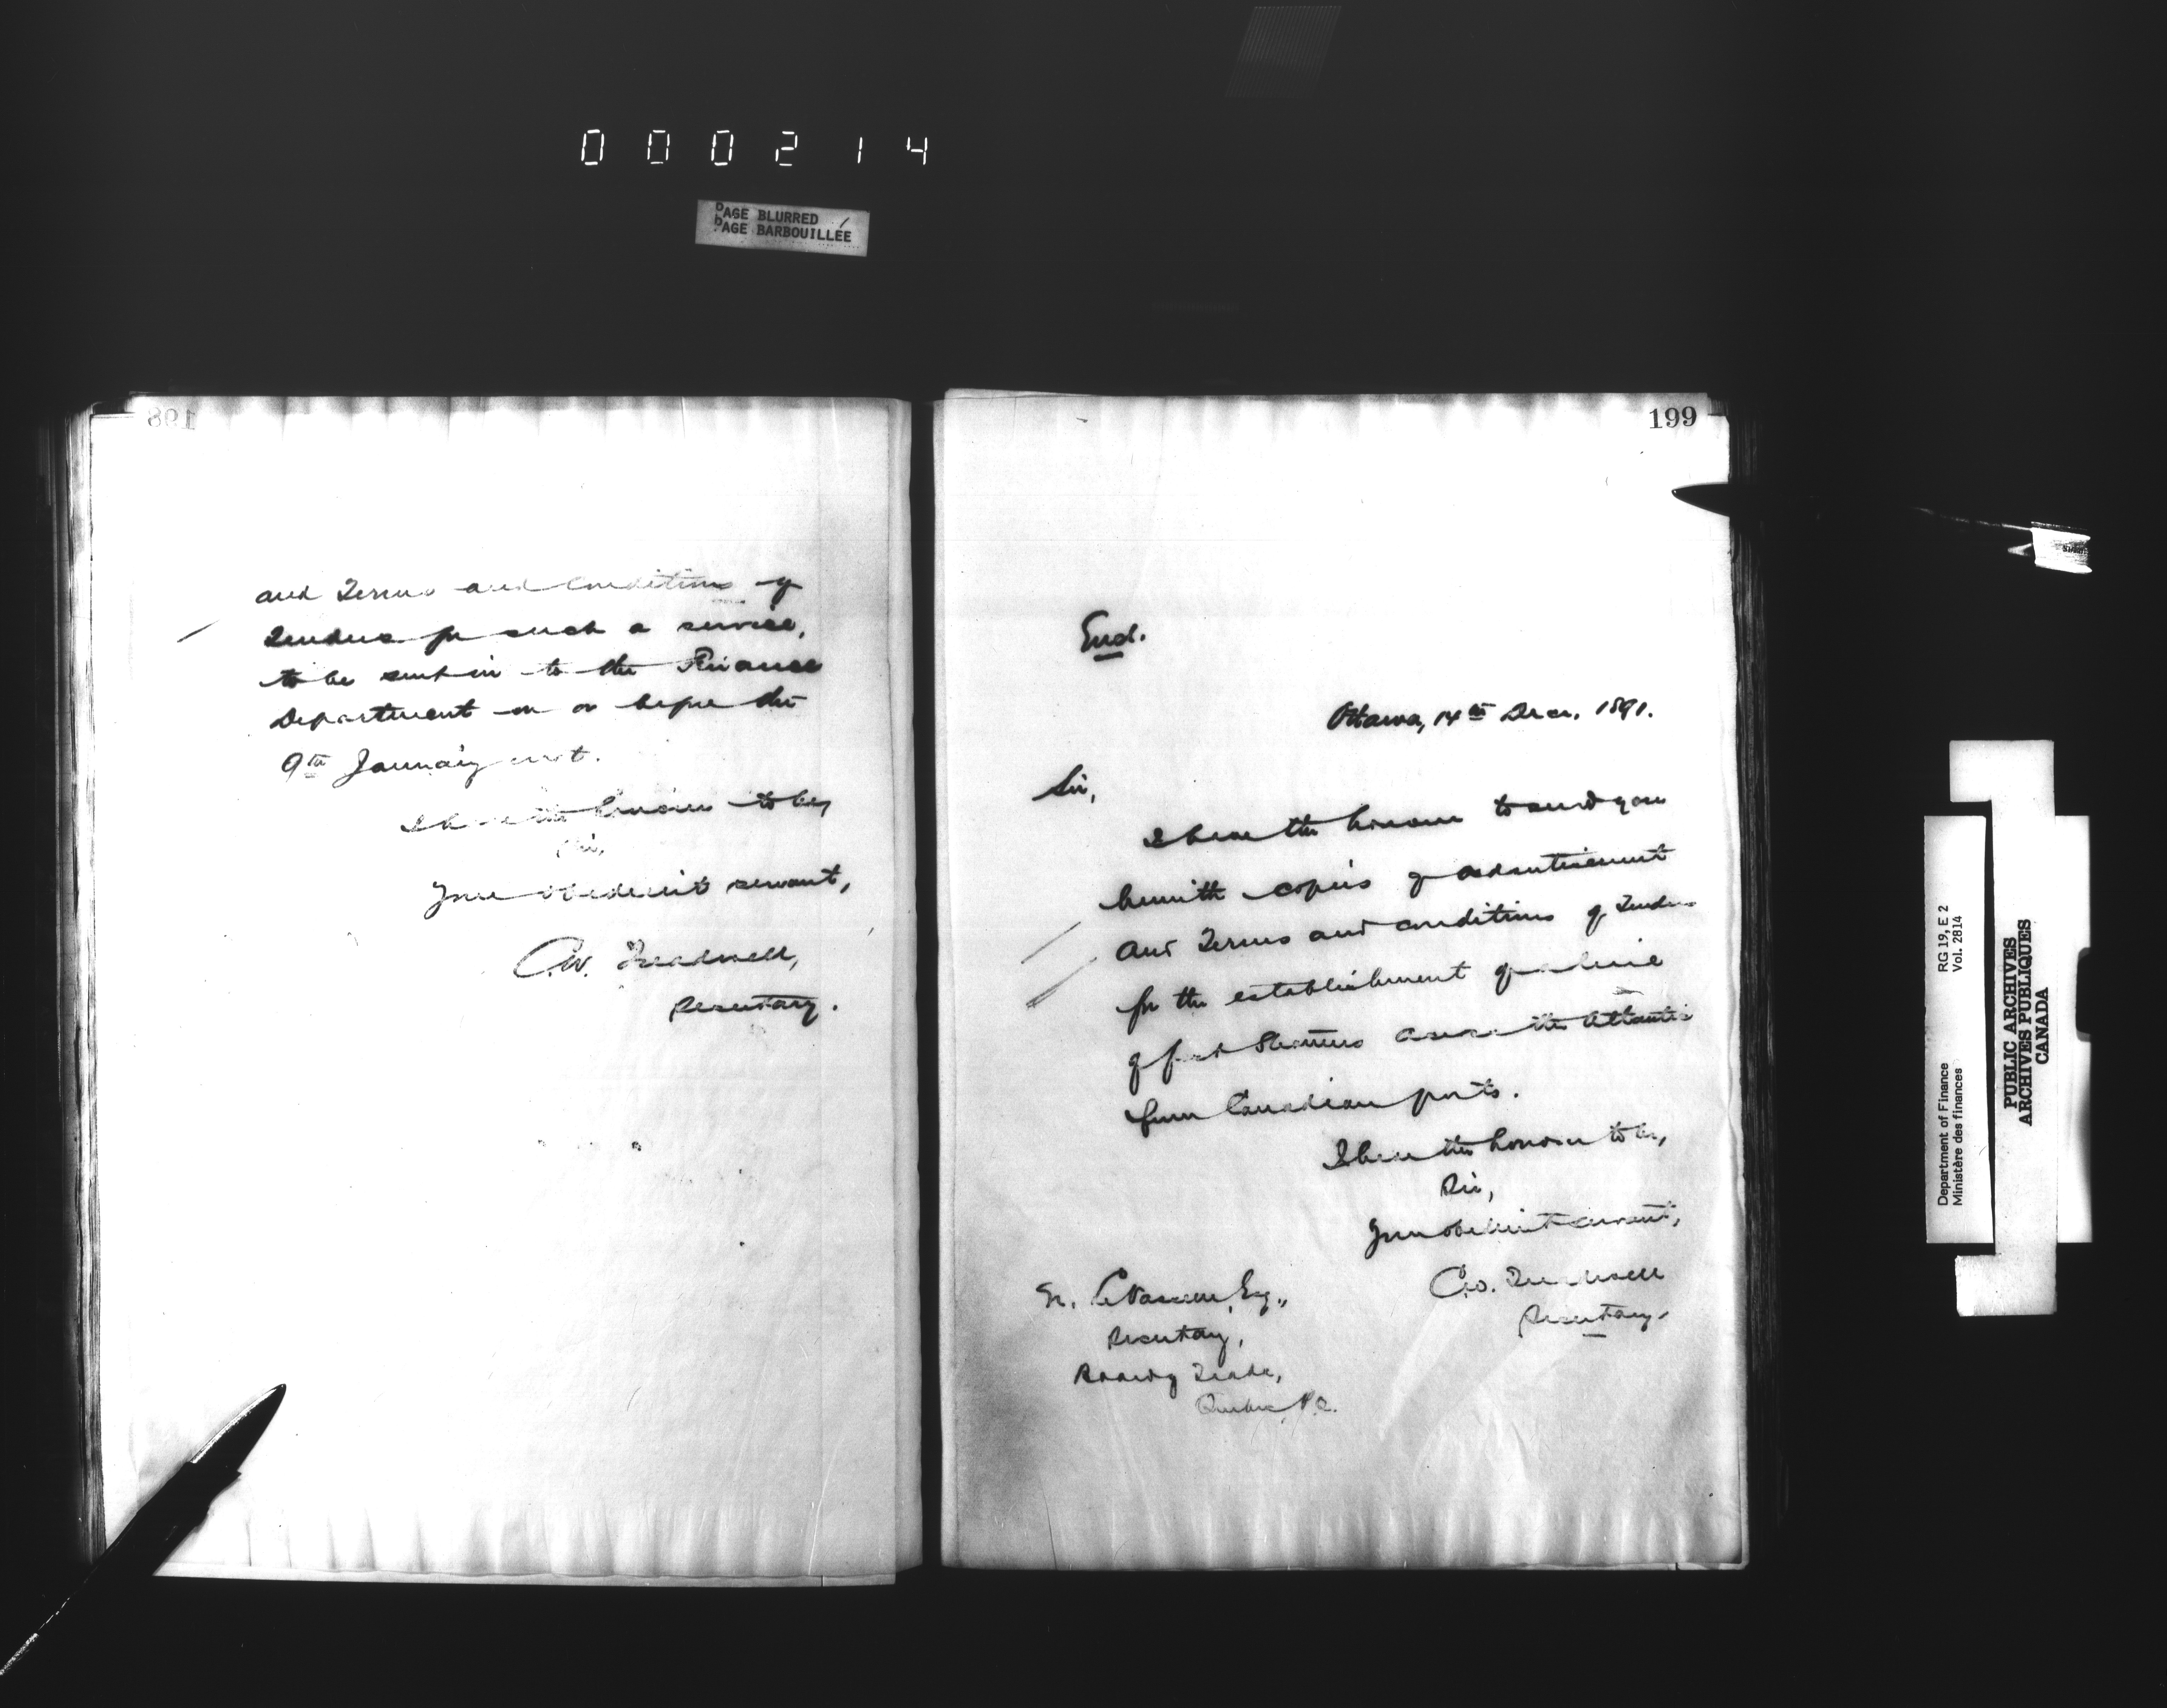 000214
PAGE BLURRED
PAGE BARBOUILLÉE
198
and Terms and Conditions of
Tenders for such a service,
to be sent in to the Finance
Department on or before the
9th January next.
I have the honour to be,
Sir,
Your obedient servant,
C.W. Treadwell,
Secretary.
199
Encl.
Ottawa, 14th Decr. 1891.
Sir,
I have the honour to send you
herewith copies of advertisement
and Terms and Conditions of Tenders
for the establishment of a line
of fast Steamers across the Atlantic
from Canadian ports.
I have the honour to be,
Sir,
Your obedient servant,
C.W. Treadwell
Secretary.
Esq.,
Secretary,
Board of Trade,
Quebec, P.Q.
Department of Finance
Ministère des finances
RG 19, E 2
Vol. 2814
PUBLIC ARCHIVES
ARCHIVES PUBLIQUES
CANADA